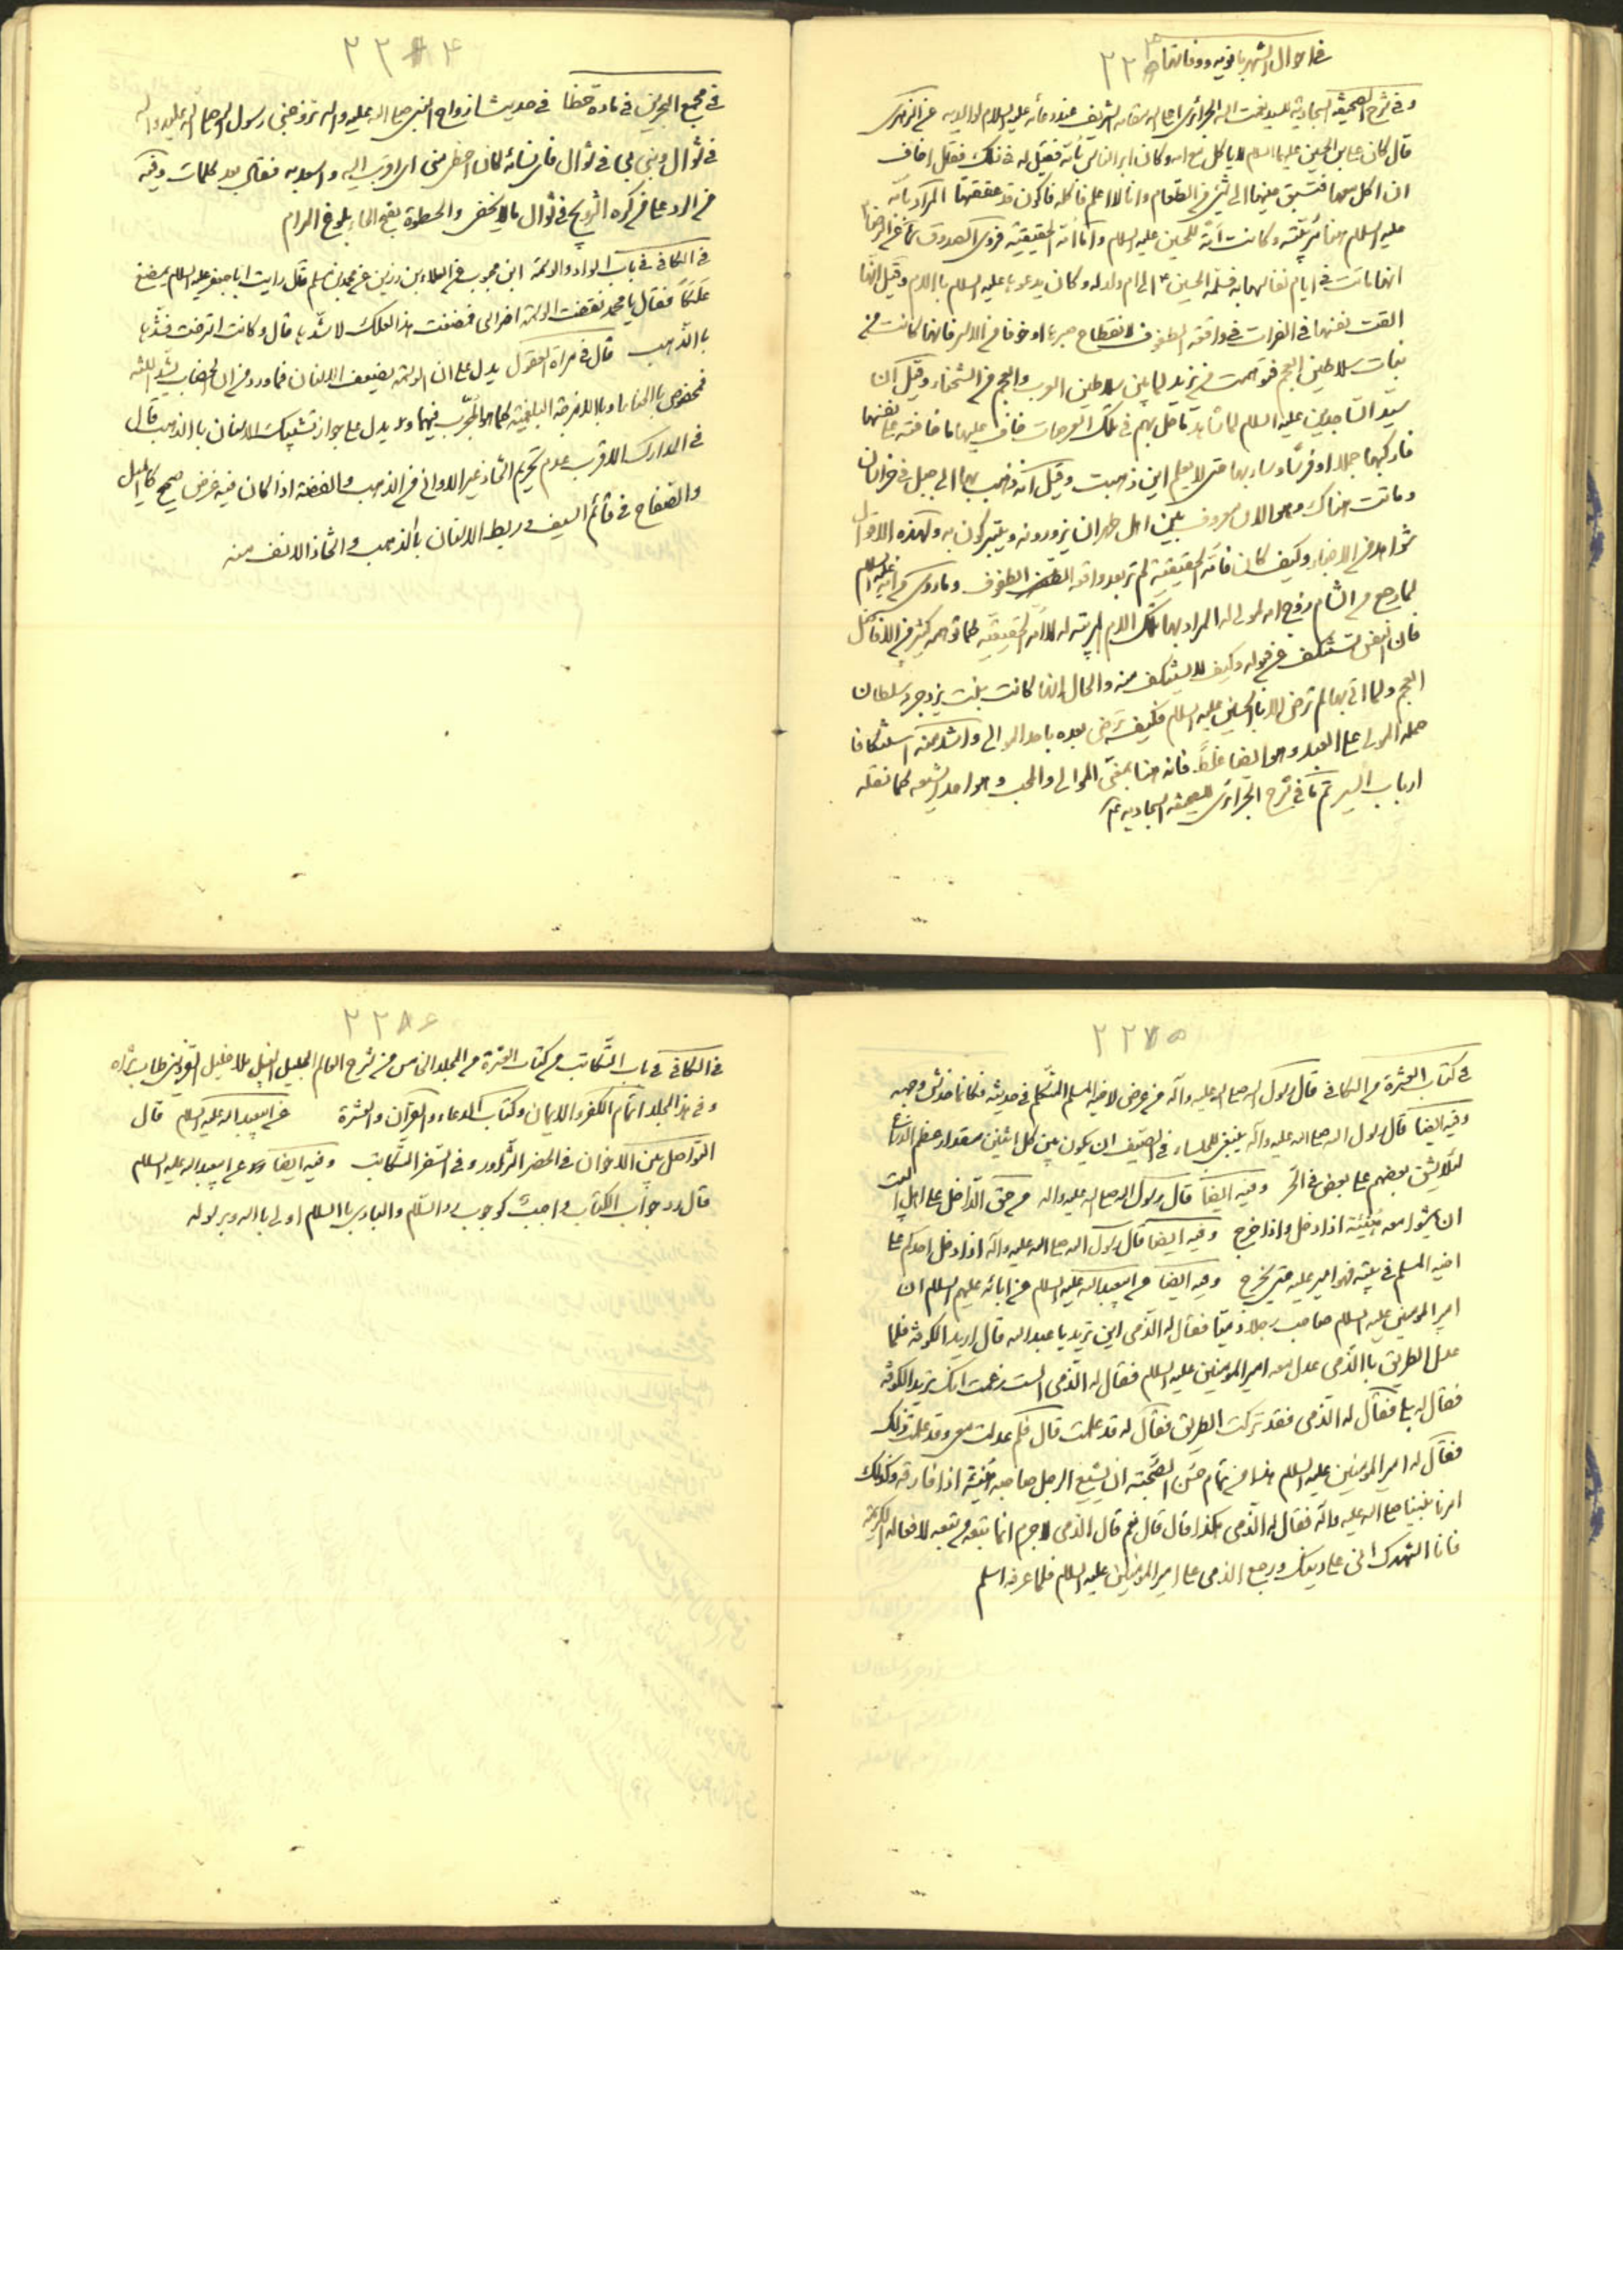 في احوال الشهربانويه ووفاتها
۲۲۳
وفي شرح الصحيفة السجادية للسيد نعمت الله الجزائري اعلى الله مقامه الشريف عند دعائه عليه السلام لوالديه عن الزهري
قال كان علي بن الحسين عليهما السلام لا ياكل مع امه وكان ابر الناس بامه فقيل له في ذلك فقال اخاف
ان اكل معها فتسبق عينها الى شئ من الطعام وانا لا اعلم فاكله فاكون قد عققتها المراد بامه
عليه السلام هنا مربيته وكانت امة للحسين عليه السلام واما امه الحقيقية فروى الصدوق عن الرضا
انها ماتت في ايام نفاسها به فسلمه الحسين ع الى ام ولد له وكان يدعوها عليه السلام بالام وقيل انها
القت نفسها في الفرات في واقعة الطفوف لانقطاع صبرها او خوفا من الاسر فانها كانت من
بنات سلاطين العجم فتوهمت من يزيد لما بين سلاطين العرب والعجم من الشحناء وقيل ان
سيد الساجدين عليه السلام لما شاهد ما حل بهم في تلك العرصات خاف عليها ما خافته على نفسها
فاركبها جملا او فرسا وسار بها حتى لا يعلم اين ذهبت وقيل انه ذهب بها الى جبل في خراسان
وماتت هناك وهو الان معروف بين اهل طهران يزورونه ويتبركون به ولهذه الاقوال
شواهد من الاخبار وكيف كان فامه الحقيقية لم تر بعد واقعة الطفوف وما روى من انه عليه السلام
لما رجع من الشام زوج امه لمولى له المراد بها تلك الام المربية له لا امه الحقيقية كما توهمه كثير من الافاضل
فان النفس تستنكف عن قبوله وكيف لا يستنكف منه والحال انها كانت بنت يزدجرد سلطان
العجم ولما اتى بها لم ترض الا بالحسين عليه السلام فكيف ترضى بعده باحد الموالي واشد منه استنكافا
حمله المولى على العبد وهو ايضا غلط فانه هنا بمعنى الموالي والمحب وهو احد الشيعة كما نقله
ارباب السير تم ما في شرح الجزائري للصحيفة السجادية
۲۲۴
في مجمع البحرين في مادة حظا في حديث ازواج النبي صلى الله عليه واله تزوجني رسول الله صلى الله عليه واله
في شوال وبنى بي في شوال فاي نسائه كان احظى مني اي اقرب اليه واسعد به فقال بعد كلمات وفيه
من الرد على من كره التزويج في شوال ما لا يخفى والحظوة بضم الحاء بلوغ المرام
في الكافي في باب السواد والوسمة ابن محبوب عن العلاء بن رزين عن محمد بن مسلم قال رايت ابا جعفر عليه السلام يمضغ
علكا فقال يا محمد نقضت الوسمة اضراسي فمضغت هذا العلك لاشدها قال وكانت استرخت فشدها
بالذهب قال في مراة العقول يدل على ان الوسمة يضعف الاسنان فما ورد من ان الخضاب يشد اللثة
مخصوص بالحناء او بالامزجة البلغمية كما هو المجرب فيهما ويدل على جواز تشبيك الاسنان بالذهب قال
في المدارك الاقرب عدم تحريم اتخاذ غير الاواني من الذهب والفضة اذا كان فيه غرض صحيح كالميل
والصفائح في قائم السيف وربط الاسنان بالذهب واتخاذ الانف منه
۲۲۵
في كتاب العشرة من الكافي قال رسول الله صلى الله عليه وآله من عرض لاخيه المسلم المتكلم في حديثه فكانما خدش وجهه
وفيه ايضا قال رسول الله صلى الله عليه واله ينبغي للجلساء في الصيف ان يكون بين كل اثنين مقدار عظم الذراع
لئلا يشق بعضهم على بعض في الحر وفيه ايضا قال رسول الله صلى الله عليه واله من حق الداخل على اهل البيت
ان يمشوا معه هنيئة اذا دخل واذا خرج وفيه ايضا قال رسول الله صلى الله عليه وآله اذا دخل احدكم على
اخيه المسلم في بيته فهو امير عليه حتى يخرج وفيه ايضا عن ابيعبد الله عليه السلام عن ابائه عليهم السلام ان
امير المومنين عليه السلام صاحب رجلا ذميا فقال له الذمي اين تريد يا عبد الله قال اريد الكوفة فلما
عدل الطريق بالذمي عدل معه امير المومنين عليه السلام فقال له الذمي الست زعمت انك تريد الكوفة
فقال له بلى فقال له الذمي فقد تركت الطريق فقال له قد علمت قال فلم عدلت معي وقد علمت ذلك
فقال له امير المومنين عليه السلام هذا من تمام حسن الصحبة ان يشيع الرجل صاحبه هنيئة اذا فارقه وكذلك
امرنا نبينا صلى الله عليه وآله فقال له الذمي هكذا قال قال نعم قال الذمي لا جرم انما تبعه من تبعه لافعاله الكريمة
فانا اشهدك اني على دينك ورجع الذمي مع امير المومنين عليه السلام فلما عرفه اسلم
۲۲۶
في الكافي في باب التكاتب من كتاب العشرة من المجلد الخامس من شرح العالم الجليل النبيل ملا خليل القزويني طاب ثراه
وفي هذا المجلد اتمام الكفر والايمان وكتاب الدعاء والقران والعشرة عن ابيعبد الله عليه السلام قال
التواصل بين الاخوان في الحضر التزاور وفي السفر التكاتب وفيه ايضا عن ابيعبد الله عليه السلام
قال رد جواب الكتاب واجب كوجوب رد السلام والبادي بالسلام اولى بالله وبرسوله